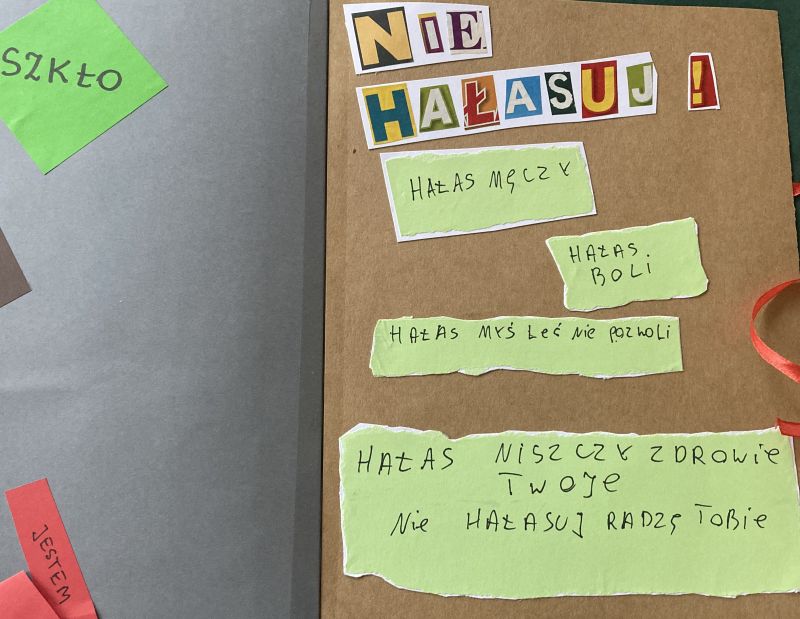 SZKŁO
JESTEM
NIE
HAŁASUJ!
HAŁAS MĘCZY
HAŁAS.
BOLI
HAŁAS MYŚLEĆ NIE POZWOLI
HAŁAS NISZCZY ZDROWIE
TWOJE
NIE HAŁASUJ RADZĘ TOBIE